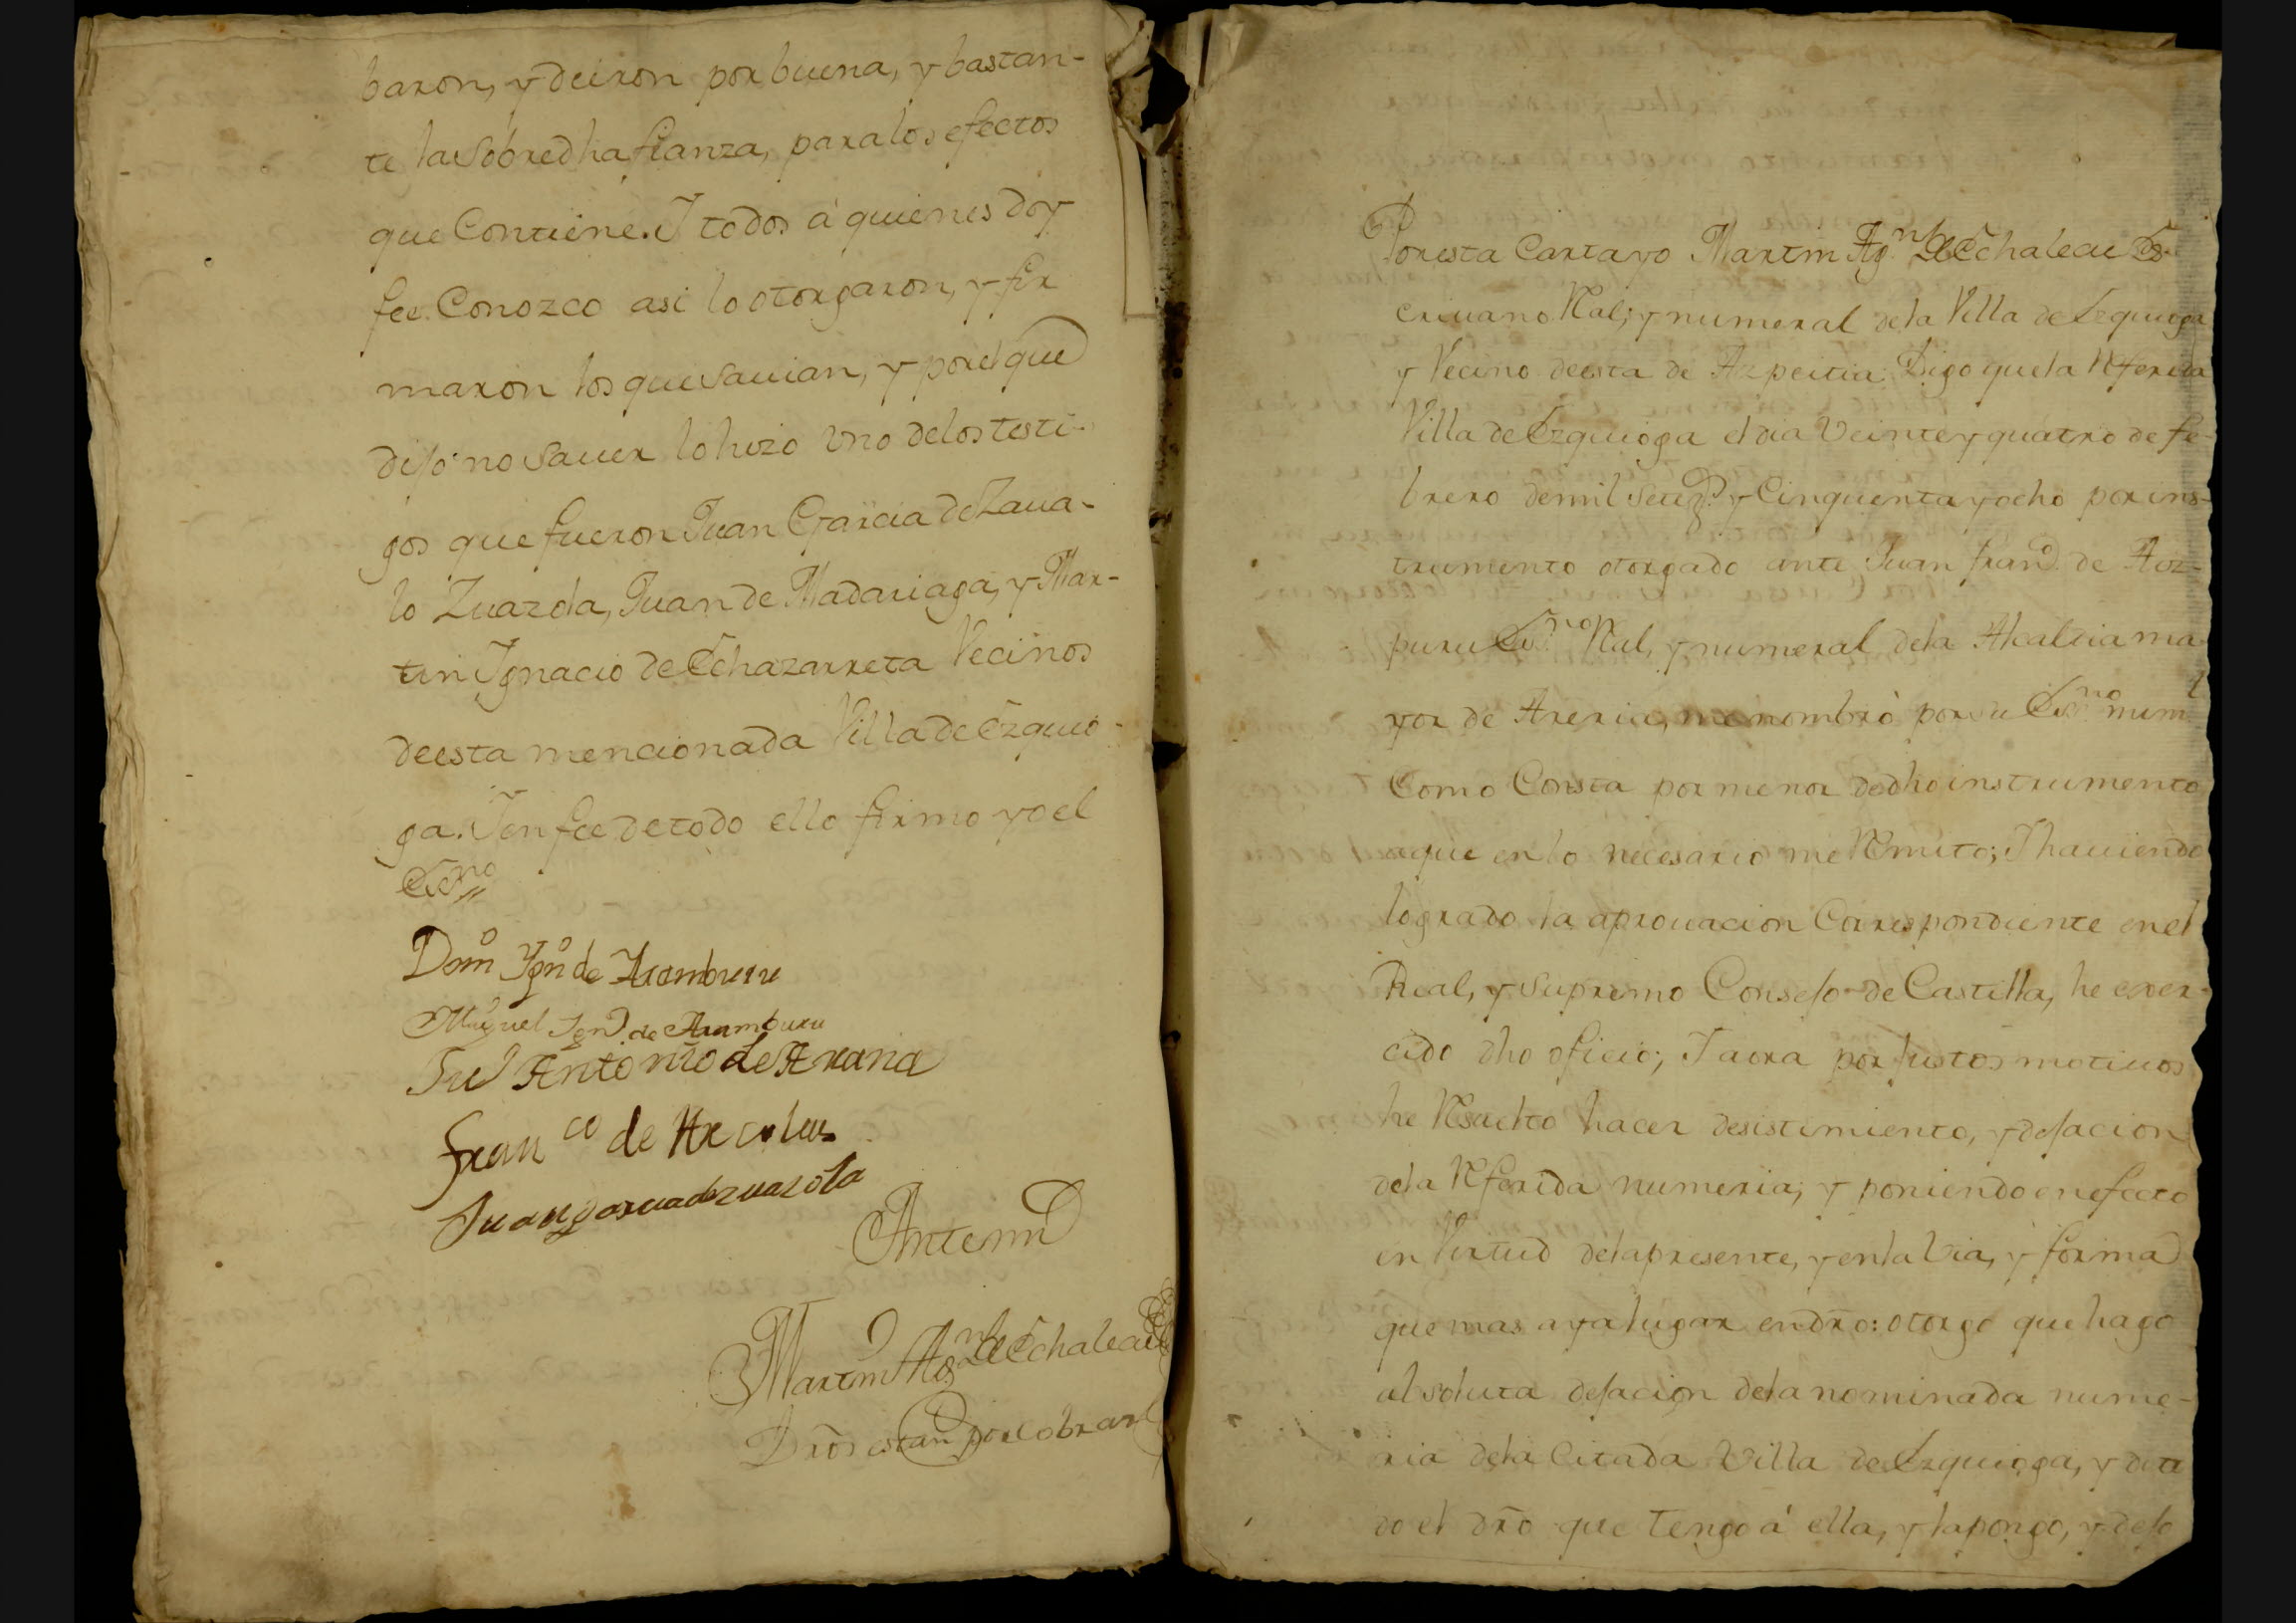 baron, y dieron por buena, y bastan-
te la sobredha fianza, para los efectos
que Contiene. I todos á quienes doy
fee Conozco asi lo otorgaron, y fir
maron los que savian, y por el que
dijo no saver lo hizo vno de los testi-
gos que fueron Juan Garcia de Zaua-
lo Zuazola, Juan de Madariaga, y Mar-
tin Ignacio de Echazarreta Vecinos
de esta mencionada Villa de Ezquio-
ga. I en fee de todo ello firmo yo el
Essno
Domo Ygno de Aramburu
Miguel Igno de Aramburu
Antonio de Arana
Franco de
Juan garcia de zuazola
Antemi
Martin Agn de Echaleau
Dros estan por cobrar
Por esta Carta yo Martin Agn de Echaleau Es-
criuano Rral, y numeral de la Villa de Ezquioga
y Vecino de esta de Azpeitia Digo que la Referida
Villa de Ezquioga el dia Veinte y quatro de fe-
brero de mil setezs y Cinquenta y ocho por ins-
trumento otorgado ante Juan Franco de Aiz-
puru Essno Rral, y numeral de la Alcaldia ma
yor de Areria, me nombró por su Essno numl
Como Consta por menor de dho instrumento
aque en lo necesario me Remito; I hauiendo
logrado la aprouacion Correspondiente en el
Real, y Supremo Consejo de Castilla, he exer-
cido dho oficio; I aora por justos motiuos
he Resuelto hacer desistimiento, y dejacion
de la Referida numeria, y poniendo en efecto
en Virtud de la presente, y en la Via, y forma
que mas aya lugar en dro: otorgo que hago
absoluta dejacion de la nominada nume-
ria de la Citada Villa de Ezquioga, y de to
do el dro que Tengo á ella, y la pongo, y dejo